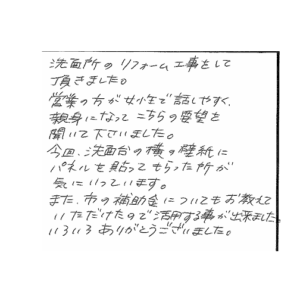 洗面所のリフォーム工事をして
頂きました。
営業の方が女性で話しやすく、
親身になってこちらの要望を
聞いて下さいました。
今回、洗面台の横の壁紙に
パネルを貼ってもらった所が
気にいっています。
また、市の補助金についてもお教えて
いただけたので活用する事が出来ました。
いろいろありがとうございました。